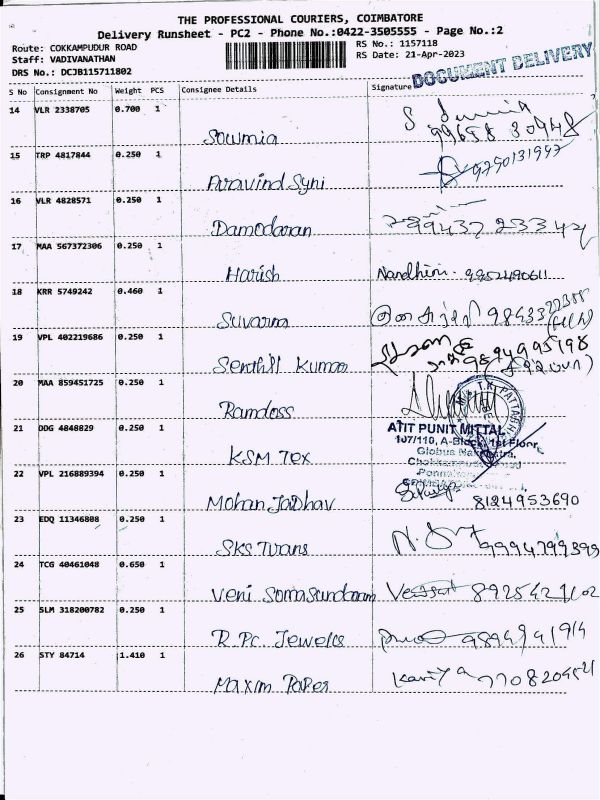 THE PROFESSIONAL COURIERS, COIMBATORE
Delivery Runsheet - PC2 - Phone No.:0422-3505555 - Page No.:2
Route: COKKAMPUDUR ROAD
RS No.: 1157118
Staff: VADIVANATHAN
RS Date: 21-Apr-2023
DRS No.: DCJB115711802
DOCUMENT DELIVERY
S No Consignment No Weight PCS Consignee Details Signature
14 VLR 2338705 0.700 1
Sowmia
99658 30948
15 TRP 4817844 0.250 1
Aravind Syni 9790131997
16 VLR 4828571 0.250 1
Damodaran 99437 23342
17 MAA 567372306 0.250 1
Harish Nandhini - 9952490611
18 KRR 5749242 0.460 1
Suvarna 98433 22388
19 VPL 402219686 0.250 1
Senthil Kumar 9894995198
20 MAA 859451725 0.250 1
Ramdoss
T.K. PATTABHI
21 DDG 4848829 0.250 1
ATIT PUNIT MITTAL
107/110, A-Block, 1st Floor,
KSM Tex
Globus
22 VPL 216889394 0.250 1
Mohan Jadhav 8124953690
23 EDQ 11346808 0.250 1
SKS Trans 9994799399
24 TCG 40461048 0.650 1
Veni Somasundaram 8925421102
25 SLM 318200782 0.250 1
R.Pc. Jewels
26 STY 84714 1.410 1
Maxim Paper Kaviya 7708204521